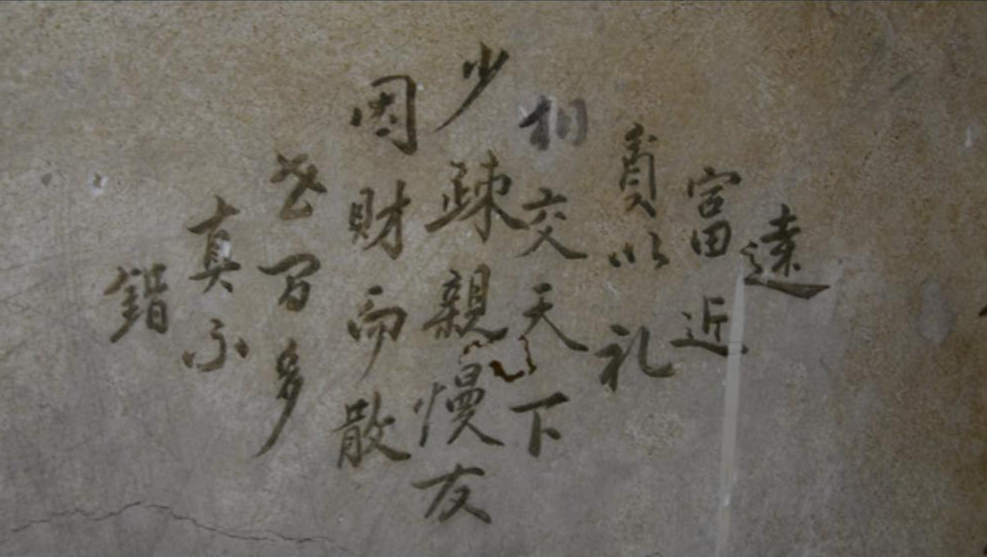 遠
富近
貧以礼
相交天下
少疎親慢友
因財而散
世間多
真不
錯